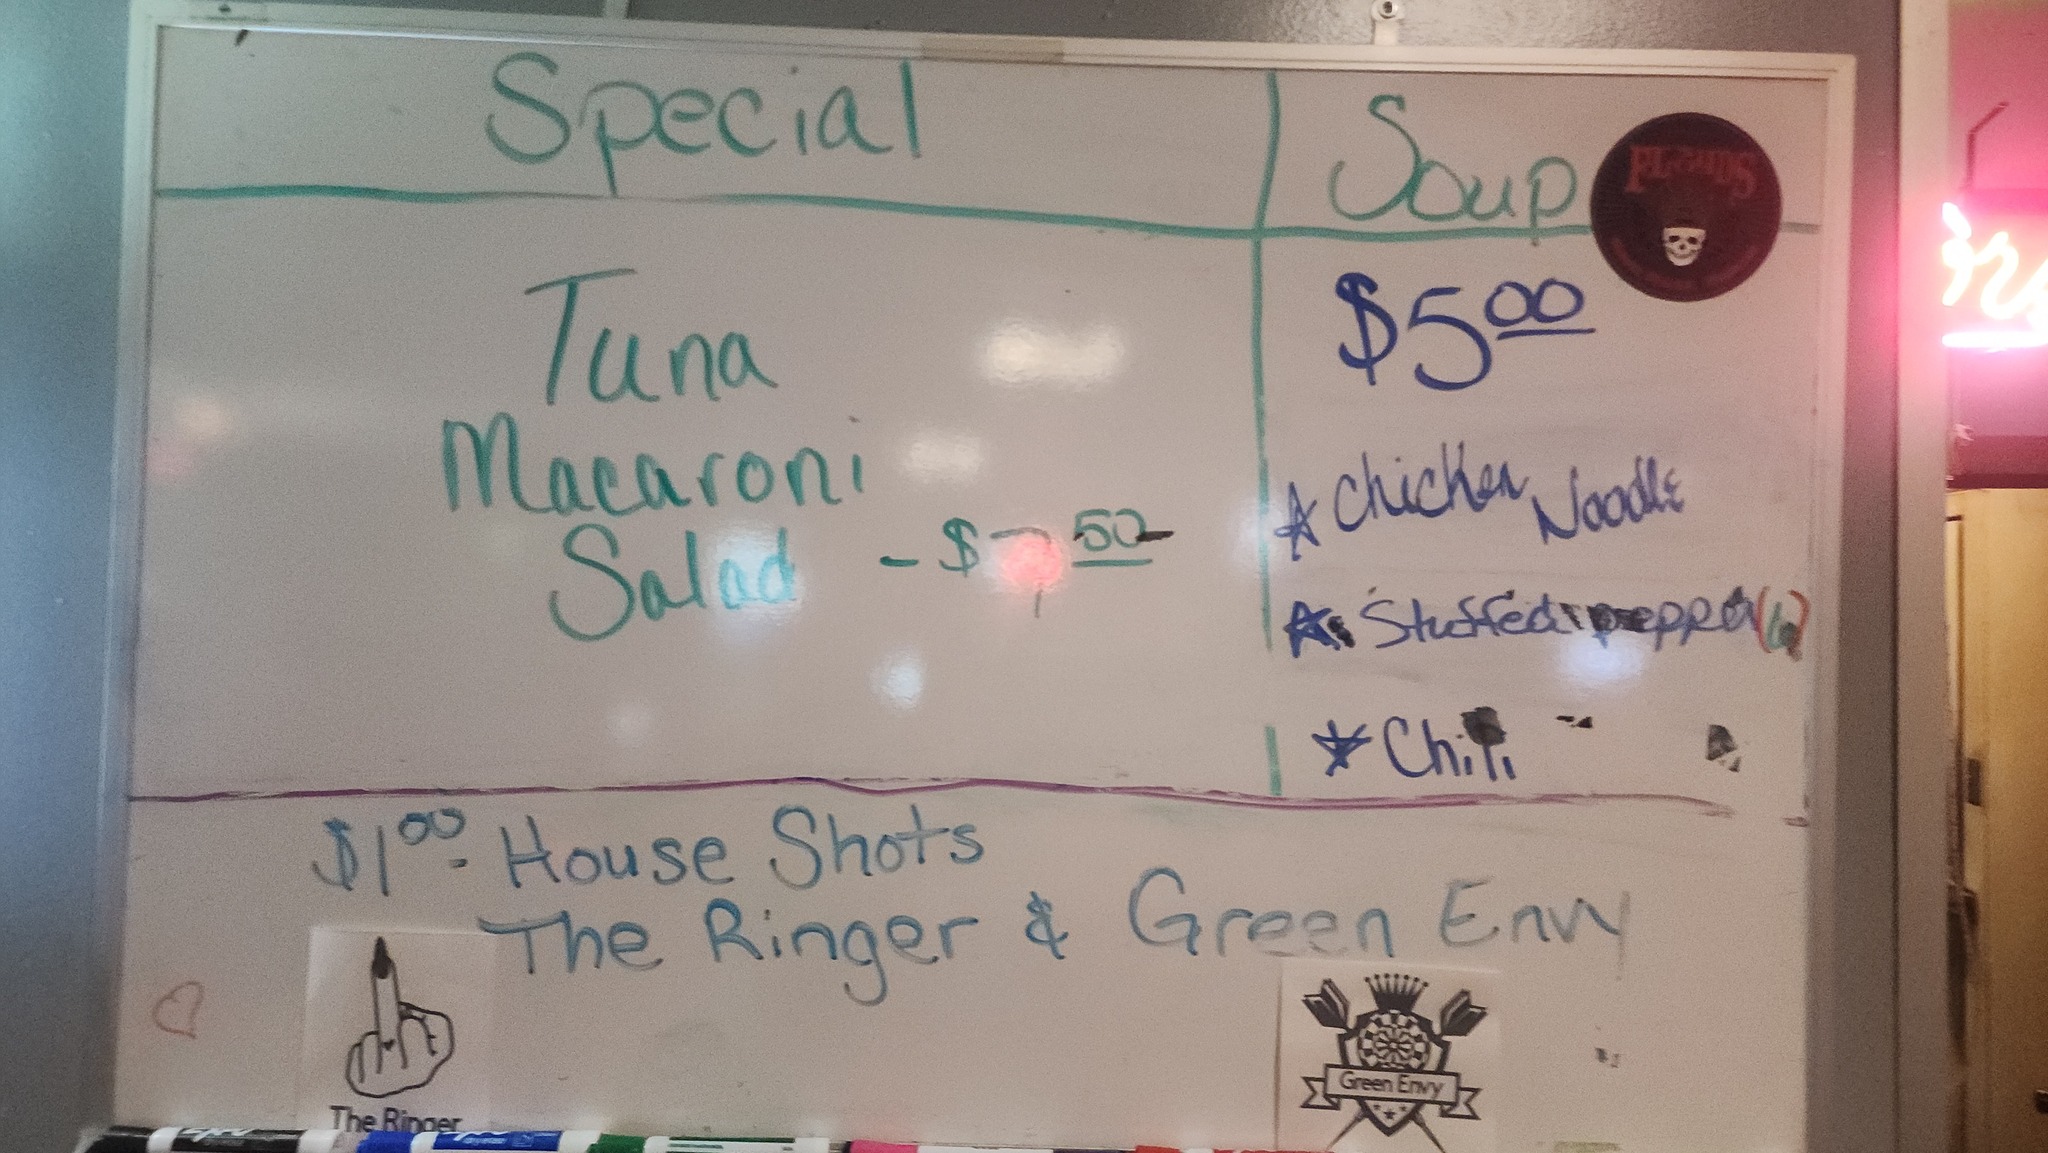 Special
Tuna
Macaroni
Salad - $7.50
Soup
$5.00
Chicken Noodle
Stuffed pepper
Chili
$1.00 House Shots
The Ringer & Green Envy
The Ringer
Green Envy